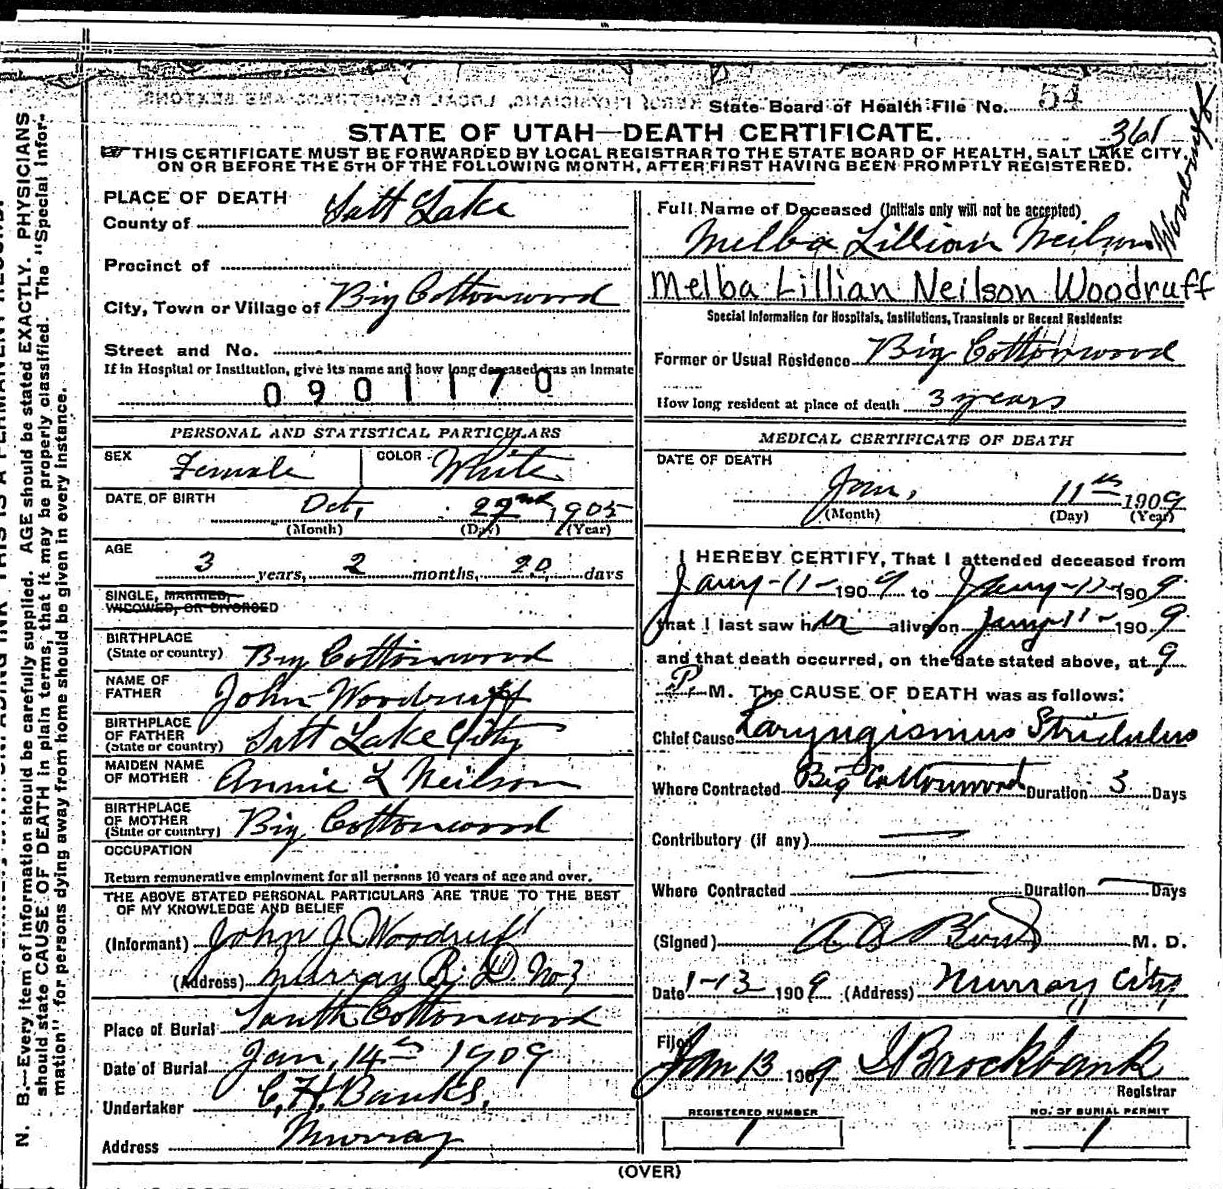 State Board of Health File No. 54
361
STATE OF UTAH—DEATH CERTIFICATE.
THIS CERTIFICATE MUST BE FORWARDED BY LOCAL REGISTRAR TO THE STATE BOARD OF HEALTH, SALT LAKE CITY,
ON OR BEFORE THE 5TH OF THE FOLLOWING MONTH, AFTER FIRST HAVING BEEN PROMPTLY REGISTERED.
PLACE OF DEATH
County of Salt Lake
Precinct of
City, Town or Village of Big Cottonwood
Street and No.
If in Hospital or Institution, give its name and how long deceased was an inmate
0901170
PERSONAL AND STATISTICAL PARTICULARS
SEX Female COLOR White
DATE OF BIRTH Oct, 22nd 1905
(Month) (Day) (Year)
AGE
3 years, 2 months, 20 days
SINGLE, MARRIED,
WIDOWED, OR DIVORCED
BIRTHPLACE
(State or country) Big Cottonwood
NAME OF
FATHER John Woodruff
BIRTHPLACE
OF FATHER
(State or country) Salt Lake City
MAIDEN NAME
OF MOTHER Annie L Neilson
BIRTHPLACE
OF MOTHER
(State or country) Big Cottonwood
OCCUPATION
Return remunerative employment for all persons 10 years of age and over.
THE ABOVE STATED PERSONAL PARTICULARS ARE TRUE TO THE BEST
OF MY KNOWLEDGE AND BELIEF
(Informant) John J Woodruff
(Address) Murray R. D. No 3
Place of Burial South Cottonwood
Date of Burial Jan, 14th 1909
Undertaker C, H, Banks,
Address Murray
Full Name of Deceased (Initials only will not be accepted)
Melba Lillian Neilson Woodruff
Melba Lillian Neilson Woodruff
Special Information for Hospitals, Institutions, Transients or Recent Residents:
Former or Usual Residence Big Cottonwood
How long resident at place of death 3 years
MEDICAL CERTIFICATE OF DEATH
DATE OF DEATH
Jan, 11th 1909
(Month) (Day) (Year)
I HEREBY CERTIFY, That I attended deceased from
Jany-11- 1909 to Jany-11- 1909.
that I last saw her alive on Jany-11- 1909.
and that death occurred, on the date stated above, at 9
P. M. The CAUSE OF DEATH was as follows:
Chief Cause Laryngismus Stridulus
Where Contracted Big Cottonwood Duration 3 Days
Contributory (if any)
Where Contracted Duration Days
(Signed) M. D.
Date 1-13 1909 (Address) Murray City
Filed
Jan 13 1909 Brockbank
Registrar
REGISTERED NUMBER
1
NO. OF BURIAL PERMIT
1
(OVER)
N. B.—Every item of information should be carefully supplied. AGE should be stated EXACTLY. PHYSICIANS
should state CAUSE OF DEATH in plain terms, that it may be properly classified. The "Special Infor-
mation" for persons dying away from home should be given in every instance.